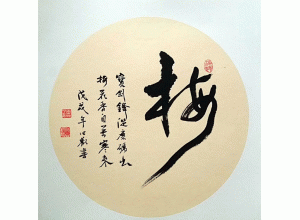 梅
寶劍鋒從磨礪出
梅花香自苦寒來
戊戌年